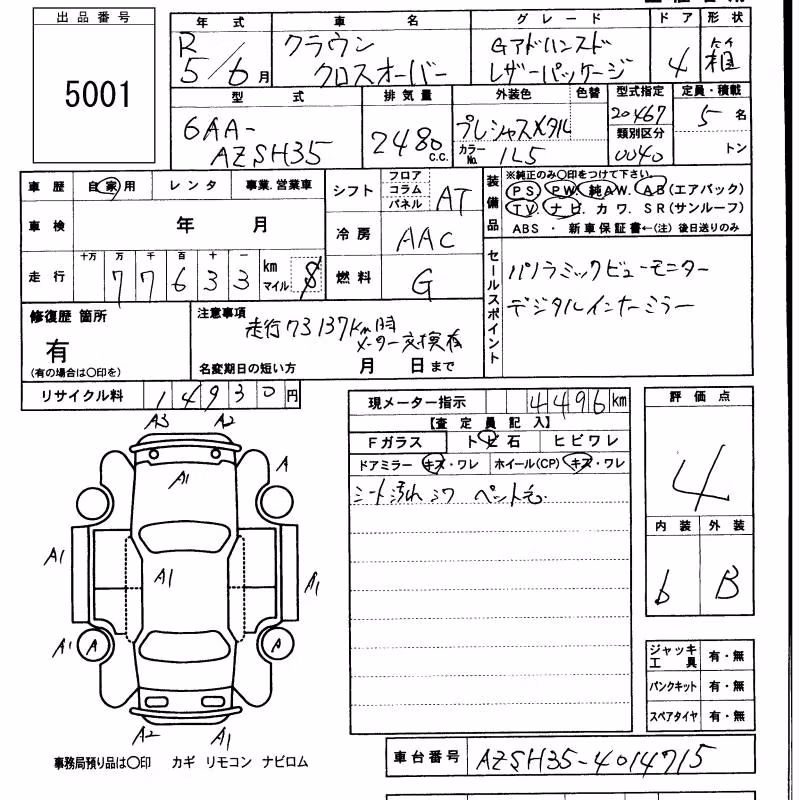 出品番号
5001
年式 車名 グレード ドア 形状
R5/6月 クラウン クロスオーバー Gアドバンスド レザーパッケージ 4 箱
型式 排気量 外装色 色替 型式指定 定員・積載
6AA-AZSH35 2480 c.c. プレシャスメタル 20467 5名
カラーNo. 1L5 類別区分 0040 トン
車歴 自家用 レンタ 事業.営業車
車検 年 月
走行 十万 万 千 百 十 一
77633 km マイル $
シフト フロア コラム パネル AT
冷房 AAC
燃料 G
装備品
※純正のみ〇印をつけて下さい。
PS. PW. 純AW. AB(エアバック)
TV. ナビ. カワ. SR(サンルーフ)
ABS ・ 新車保証書←(注) 後日送りのみ
セールスポイント
パノラミックビューモニター
デジタルインナーミラー
修復歴 箇所
有
(有の場合は〇印を)
注意事項
走行73137km時
メーター交換有
名変期日の短い方 月 日まで
リサイクル料 14930円
現メーター指示 4496km
【査定員記入】
Fガラス トビ石 ヒビワレ
ドアミラー キズ・ワレ ホイール(CP) キズ・ワレ
シート汚れ シワ ペット毛
評価点
4
内装 外装
b B
ジャッキ 工具 有・無
パンクキット 有・無
スペアタイヤ 有・無
A3 A2
A1 A
A1 A1 A1
A1 A A
A2 A1
事務局預り品は〇印 カギ リモコン ナビロム
車台番号 AZSH35-4014715